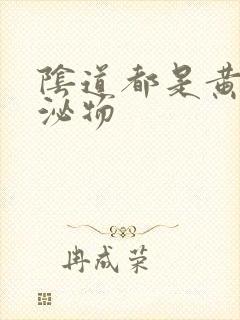 陰道都是黃
泌物
冉成荣